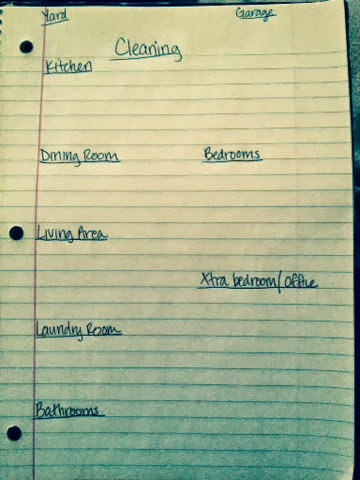 Yard Garage
Cleaning
Kitchen
Dining Room Bedrooms
Living Area
Xtra bedroom/office
Laundry Room
Bathrooms